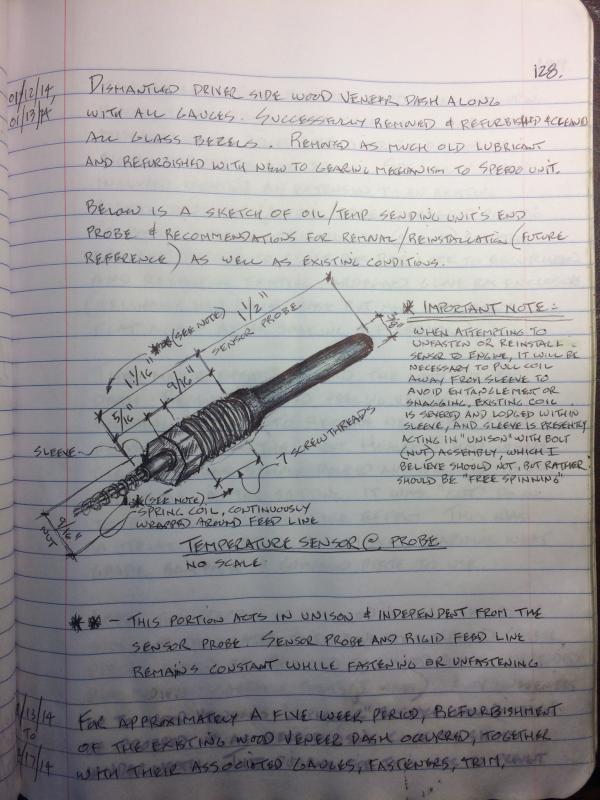 128.
01/12/14,
01/13/14
DISMANTLED DRIVER SIDE WOOD VENEER DASH ALONG
WITH ALL GAUGES. SUCCESSFULLY REMOVED & REFURBISHED & CLEANED
ALL GLASS BEZELS. REMOVED AS MUCH OLD LUBRICANT
AND REFURBISHED WITH NEW TO GEARING MECHANISM TO SPEEDO UNIT.
BELOW IS A SKETCH OF OIL/TEMP SENDING UNIT'S END
PROBE & RECOMMENDATIONS FOR REMOVAL/REINSTALLATION (FUTURE
REFERENCE) AS WELL AS EXISTING CONDITIONS.
** (SEE NOTE)
1 1/2"
SENSOR PROBE
3/8"
1 1/16"
9/16"
5/16"
SLEEVE
7 SCREW THREADS
* (SEE NOTE)
SPRING COIL, CONTINUOUSLY
WRAPPED AROUND FEED LINE
9/16"
NUT
TEMPERATURE SENSOR @ PROBE
NO SCALE
* IMPORTANT NOTE:
WHEN ATTEMPTING TO
UNFASTEN OR REINSTALL
SENSOR TO ENGINE, IT WILL BE
NECESSARY TO PULL COIL
AWAY FROM SLEEVE TO
AVOID ENTANGLEMENT OR
SNAGGING. EXISTING COIL
IS SEVERED AND LODGED WITHIN
SLEEVE, AND SLEEVE IS PRESENTLY
ACTING IN "UNISON" WITH BOLT
(NUT) ASSEMBLY, WHICH I
BELIEVE SHOULD NOT, BUT RATHER
SHOULD BE "FREE SPINNING"
** - THIS PORTION ACTS IN UNISON & INDEPENDENT FROM THE
SENSOR PROBE. SENSOR PROBE AND RIGID FEED LINE
REMAINS CONSTANT WHILE FASTENING OR UNFASTENING
/13/14
TO
/17/14
FOR APPROXIMATELY A FIVE WEEK PERIOD, REFURBISHMENT
OF THE EXISTING WOOD VENEER DASH OCURRED, TOGETHER
WITH THEIR ASSOCIATED GAUGES, FASTENERS, TRIM,